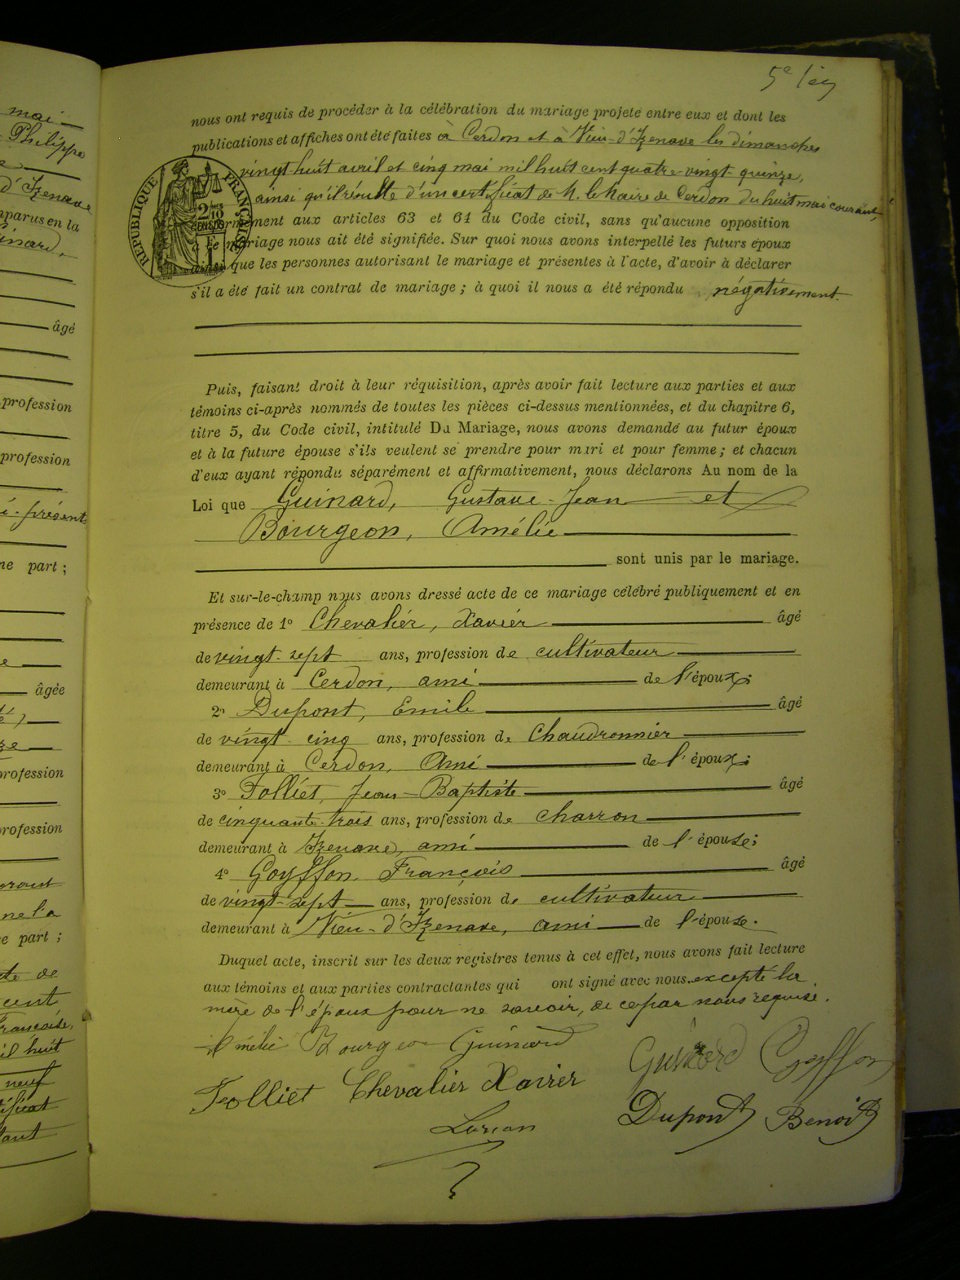 5e
nous ont requis de procéder à la célébration du mariage projeté entre eux et dont les
publications et affiches ont été faites à Cerdon et à Vieu-d'Izenave les dimanches
vingt huit avril et cinq mai mil huit cent quatre-vingt quinze,
ainsi qu'il résulte d'un certificat de M. le Maire de Cerdon du huit mai courant
RÉPUBLIQUE FRANÇAISE
aux articles 63 et 64 du Code civil, sans qu'aucune opposition
mariage nous ait été signifiée. Sur quoi nous avons interpellé les futurs époux
que les personnes autorisant le mariage et présentes à l'acte, d'avoir à déclarer
s'il a été fait un contrat de mariage ; à quoi il nous a été répondu négativement
Puis, faisant droit à leur réquisition, après avoir fait lecture aux parties et aux
témoins ci-après nommés de toutes les pièces ci-dessus mentionnées, et du chapitre 6,
titre 5, du Code civil, intitulé Du Mariage, nous avons demandé au futur époux
et à la future épouse s'ils veulent se prendre pour mari et pour femme ; et chacun
d'eux ayant répondu séparément et affirmativement, nous déclarons Au nom de la
Loi que Guinard, Gustave-Jean et
Bourgeon, Amélie
sont unis par le mariage.
Et sur-le-champ nous avons dressé acte de ce mariage célébré publiquement et en
présence de 1o Chevaliér, Xavier âgé
de vingt-sept ans, profession de cultivateur
demeurant à Cerdon, ami de l'époux;
2o Dupont, Emile âgé
de vingt-cinq ans, profession de Chaudronnier
demeurant à Cerdon, Ami de l'époux;
3o Folliet, Jean-Baptiste âgé
de cinquante-trois ans, profession de charron
demeurant à Izenave, ami de l'épouse;
4o Goyffon, François âgé
de vingt-sept ans, profession de cultivateur
demeurant à Vieu-d'Izenave, ami de l'épouse.
Duquel acte, inscrit sur les deux registres tenus à cet effet, nous avons fait lecture
aux témoins et aux parties contractantes qui ont signé avec nous excepté la
mère de l'époux pour ne savoir, de ce par nous requise.
Amélie Bourgeon Guinard Guinard Goyffon
Folliet Chevalier Xavier Dupont Benoit
mai
Philippe
d'Izenave
comparus en la
Guinard,
âgé
profession
profession
part ;
âgée
profession
profession
part ;
cent
Française,
mil huit
neuf